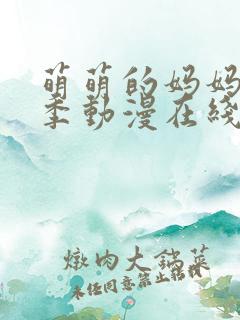 萌萌的妈妈
季動漫在綫
燉肉大鍋菜
未经同意禁止转载